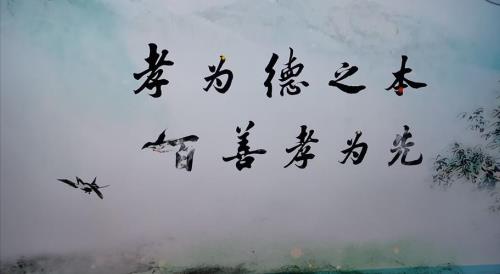 孝为德之本
百善孝为先